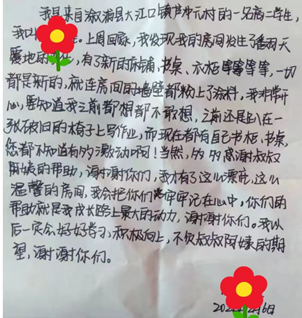 我是来自溆浦县大江口镇 村的一名高二学生,
我叫 。上周回家,我发现我的房间发生了翻天
覆地的 ,有了新的床铺、书桌、衣柜等等等等,一切
都是新的,就连房间的墙壁都粉上了涂料,我非常开
心,要知道我之前都想都不敢想,之前还是趴在一
张破旧的椅子上写作业,而现在都有自己书柜、书桌,
您都不知道有多激动啊!当然,多多感谢叔叔
阿姨的帮助,谢谢你们,我才有了这么漂亮,这么
温馨的房间,我会把你们 牢牢记在心中,你们的
帮助就是我成长路上最大的动力,谢谢你们。我以
后一定会好好学习,积极向上,不负叔叔阿姨的期
望,谢谢你们。
202 6日